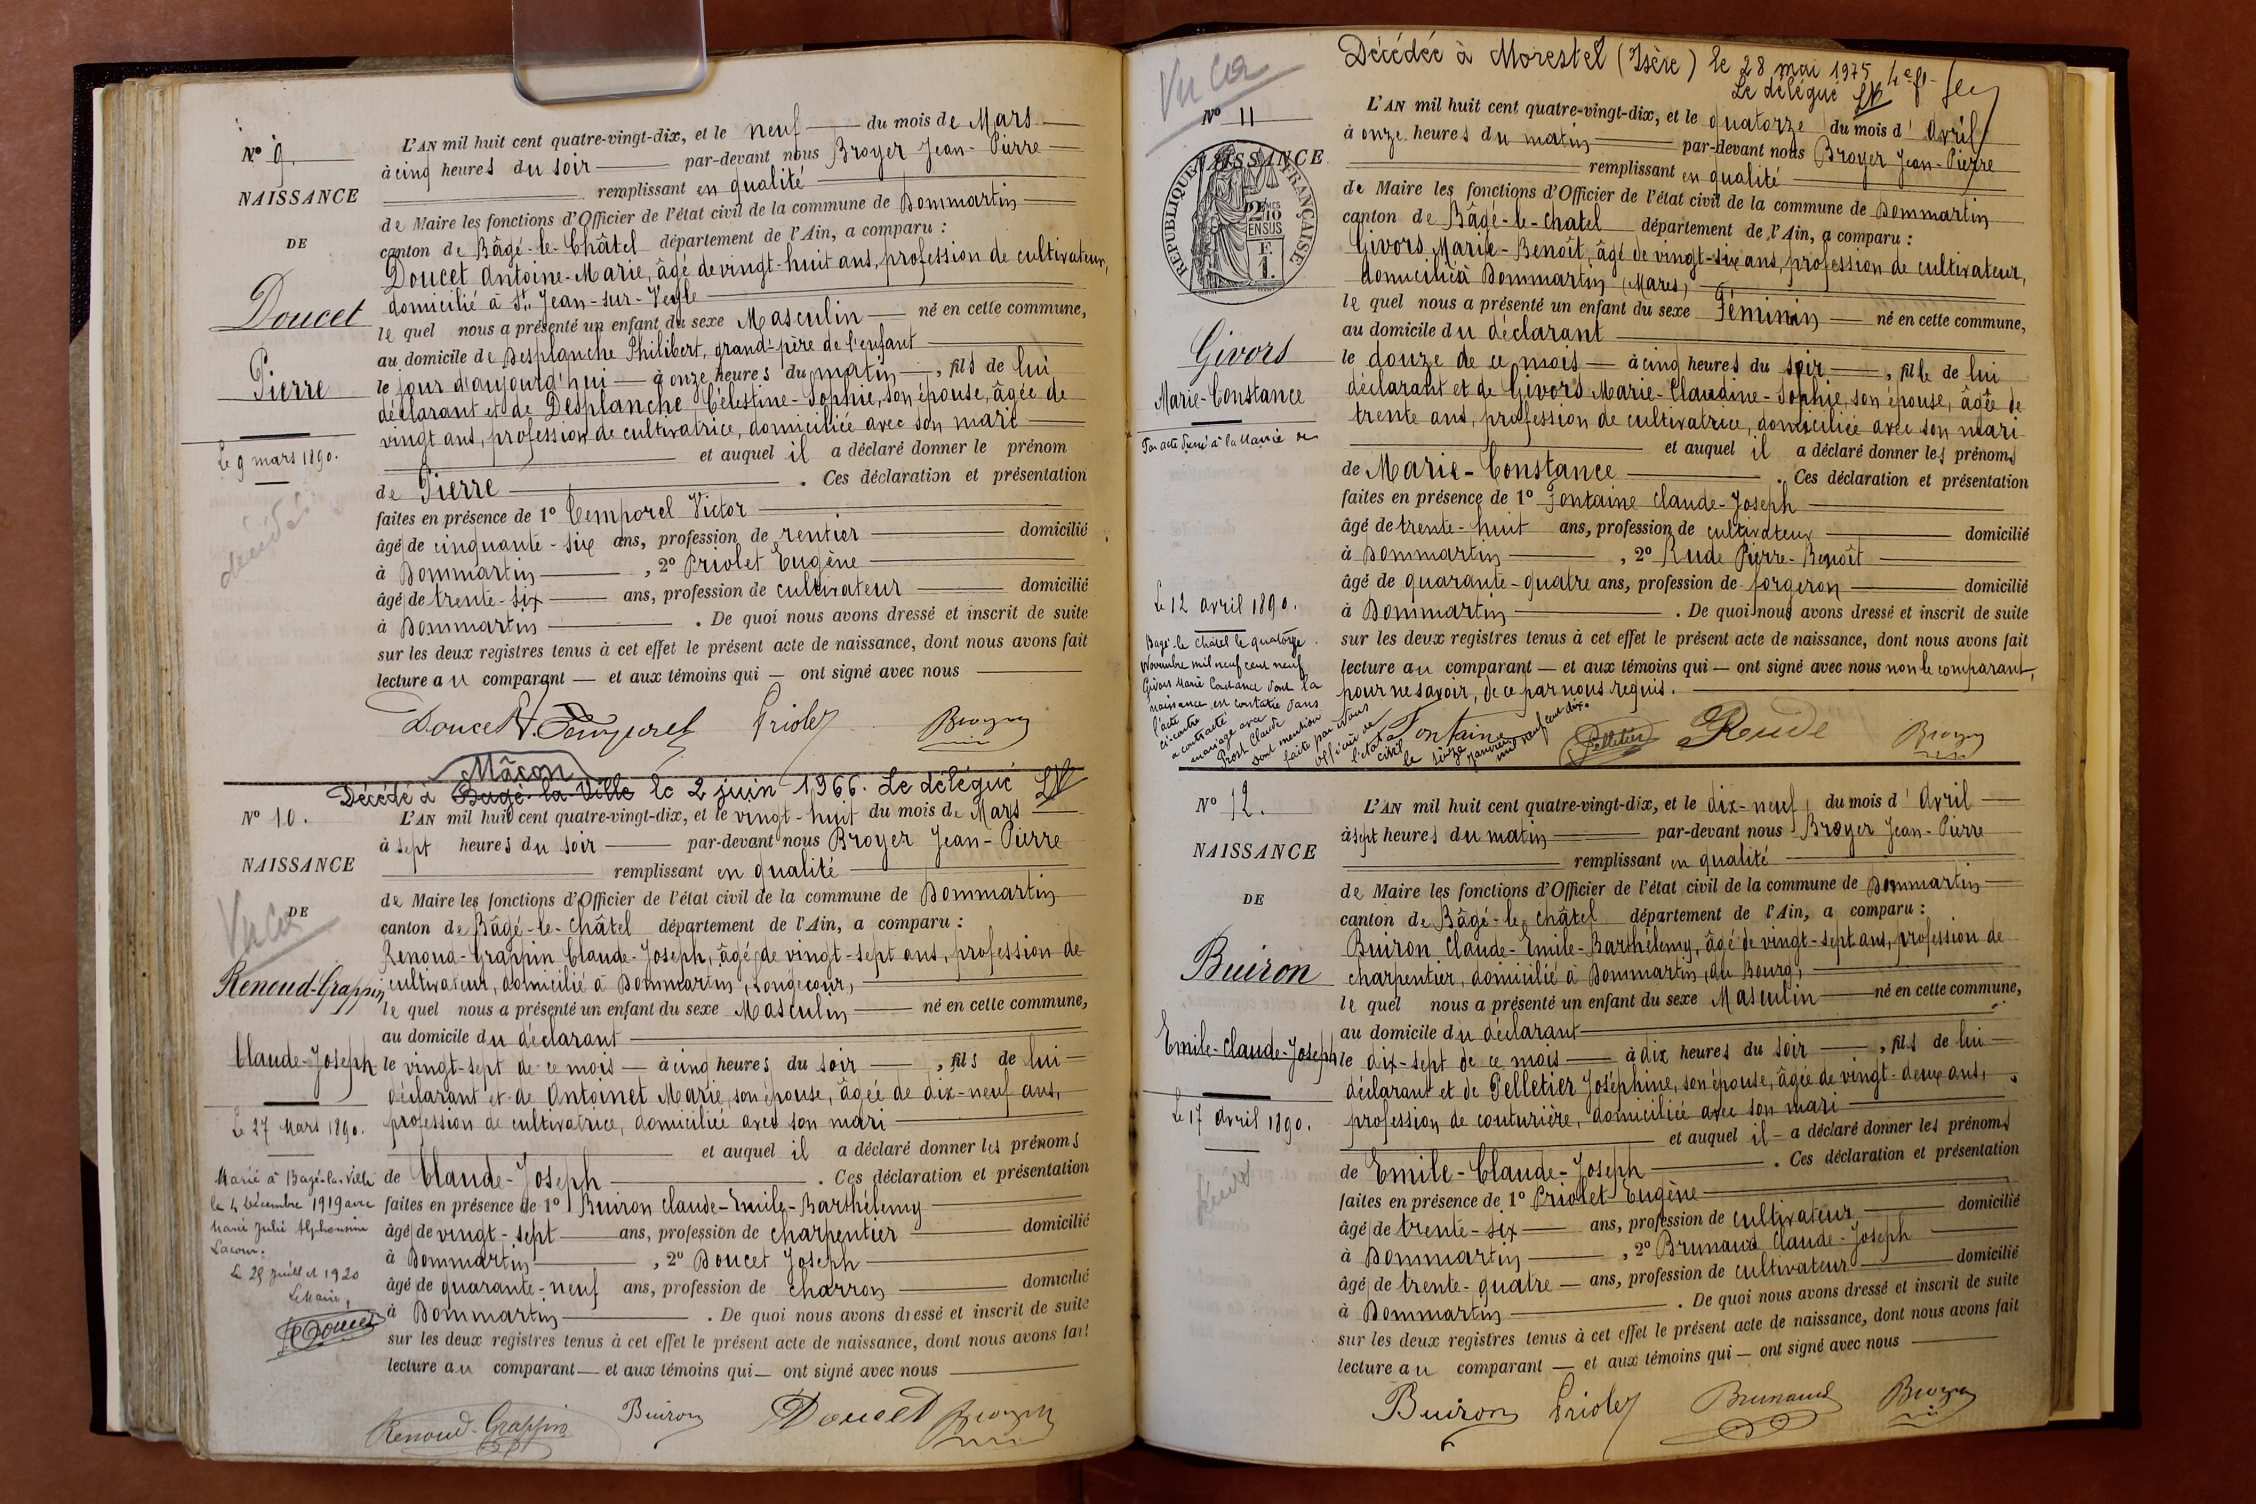 Nº 9.
NAISSANCE
DE
Doucet
Pierre
Le 9 mars 1890.
décédé
L'AN mil huit cent quatre-vingt-dix, et le neuf du mois de Mars
à cinq heures du soir par-devant nous Broyer Jean-Pierre
remplissant en qualité
de Maire les fonctions d'Officier de l'état civil de la commune de Dommartin
canton de Bâgé-le-Châtel département de l'Ain, a comparu :
Doucet Antoine-Marie, âgé de vingt-huit ans, profession de cultivateur,
domicilié à St Jean-sur-Veyle
le quel nous a présenté un enfant du sexe Masculin né en cette commune,
au domicile de Desplanche Philibert, grand-père de l'enfant
le jour d'aujourd'hui à onze heures du matin, fils de lui
déclarant et de Desplanche Célestine-Sophie, son épouse, âgée de
vingt ans, profession de cultivatrice, domiciliée avec son mari
et auquel il a déclaré donner le prénom
de Pierre . Ces déclaration et présentation
faites en présence de 1º Temporel Victor
âgé de cinquante-six ans, profession de rentier domicilié
à Dommartin , 2º Priolet Eugène
âgé de trente-six ans, profession de cultivateur domicilié
à Dommartin . De quoi nous avons dressé et inscrit de suite
sur les deux registres tenus à cet effet le présent acte de naissance, dont nous avons fait
lecture au comparant — et aux témoins qui — ont signé avec nous
Doucet Priolet Broyer
Mâcon
Décédé à Bagé-la-Ville le 2 juin 1966. Le délégué
Nº 10.
NAISSANCE
DE
Renoud-Grappin
Claude-Joseph
Le 27 Mars 1890.
Marié à Bagé-la-Ville
le 4 décembre 1919 avec
Marie Julie Alphonsine
Lacour.
Le 29 juillet 1920
Le Maire,
Doucet
L'AN mil huit cent quatre-vingt-dix, et le vingt-huit du mois de Mars
à sept heures du soir par-devant nous Broyer Jean-Pierre
remplissant en qualité
de Maire les fonctions d'Officier de l'état civil de la commune de Dommartin
canton de Bâgé-le-Châtel département de l'Ain, a comparu :
Renoud-Grappin Claude-Joseph, âgé de vingt-sept ans, profession de
cultivateur, domicilié à Dommartin, (Longecour)
le quel nous a présenté un enfant du sexe Masculin né en cette commune,
au domicile du déclarant
le vingt-sept de ce mois — à cinq heures du soir , fils de lui
déclarant et de Antoinet Marie, son épouse, âgée de dix-neuf ans,
profession de cultivatrice, domiciliée avec son mari
et auquel il a déclaré donner les prénoms
de Claude-Joseph . Ces déclaration et présentation
faites en présence de 1º Buiron Claude-Emile-Barthélemy
âgé de vingt-sept ans, profession de charpentier domicilié
à Dommartin , 2º Doucet Joseph
âgé de quarante-neuf ans, profession de charron domicilié
à Dommartin . De quoi nous avons dressé et inscrit de suite
sur les deux registres tenus à cet effet le présent acte de naissance, dont nous avons fait
lecture au comparant — et aux témoins qui — ont signé avec nous
Renoud-Grappin Buiron Doucet Broyer
Décédée à Morestel (Isère) le 28 mai 1975
Le délégué
Nº 11
NAISSANCE
RÉPUBLIQUE FRANÇAISE
2/10 EN SUS
F.
1.
Givors
Marie-Constance
Par acte dressé à la Mairie de
Le 12 avril 1890.
Bagé-le-Châtel le quatorze
Novembre mil neuf cent neuf
Givors Marie Constance dont la
naissance est constatée dans
l'acte
ci-contre
a contracté
mariage avec
Prost Claude
Dont mention
faite par nous
officier de
l'état
civil
le seize
janvier
mil neuf cent dix.
L'AN mil huit cent quatre-vingt-dix, et le quatorze du mois d'Avril
à onze heures du matin par-devant nous Broyer Jean-Pierre
remplissant en qualité
de Maire les fonctions d'Officier de l'état civil de la commune de Dommartin
canton de Bâgé-le-Chatel département de l'Ain, a comparu :
Givors Marie-Benoît, âgé de vingt-six ans, profession de cultivateur,
domicilié à Dommartin (Mares)
le quel nous a présenté un enfant du sexe Féminin né en cette commune,
au domicile du déclarant
le douze de ce mois — à cinq heures du soir , fille de lui
déclarant et de Givors Marie-Claudine-Sophie, son épouse, âgée de
trente ans, profession de cultivatrice, domiciliée avec son mari
et auquel il a déclaré donner les prénoms
de Marie-Constance . Ces déclaration et présentation
faites en présence de 1º Fontaine Claude-Joseph
âgé de trente-huit ans, profession de cultivateur domicilié
à Dommartin , 2º Rude Pierre-Benoît
âgé de quarante-quatre ans, profession de forgeron domicilié
à Dommartin . De quoi nous avons dressé et inscrit de suite
sur les deux registres tenus à cet effet le présent acte de naissance, dont nous avons fait
lecture au comparant — et aux témoins qui — ont signé avec nous non le comparant,
pour ne savoir, de ce par nous requis.
Fontaine Pelletier Rude Broyer
Nº 12.
NAISSANCE
DE
Buiron
Emile-Claude-Joseph
Le 17 avril 1890.
L'AN mil huit cent quatre-vingt-dix, et le dix-neuf du mois d'Avril
à sept heures du matin par-devant nous Broyer Jean-Pierre
remplissant en qualité
de Maire les fonctions d'Officier de l'état civil de la commune de Dommartin
canton de Bâgé-le-Châtel département de l'Ain, a comparu :
Buiron Claude-Emile-Barthélemy, âgé de vingt-sept ans, profession de
charpentier, domicilié à Dommartin, (au Bourg)
le quel nous a présenté un enfant du sexe Masculin né en cette commune,
au domicile du déclarant
le dix-sept de ce mois — à dix heures du soir , fils de lui
déclarant et de Pelletier Joséphine, son épouse, âgée de vingt-deux ans,
profession de couturière, domiciliée avec son mari
et auquel il a déclaré donner les prénoms
de Emile-Claude-Joseph . Ces déclaration et présentation
faites en présence de 1º Priolet Eugène
âgé de trente-six ans, profession de cultivateur domicilié
à Dommartin , 2º Brunaud Claude-Joseph
âgé de trente-quatre ans, profession de cultivateur domicilié
à Dommartin . De quoi nous avons dressé et inscrit de suite
sur les deux registres tenus à cet effet le présent acte de naissance, dont nous avons fait
lecture au comparant — et aux témoins qui — ont signé avec nous
Buiron Priolet Brunaud Broyer